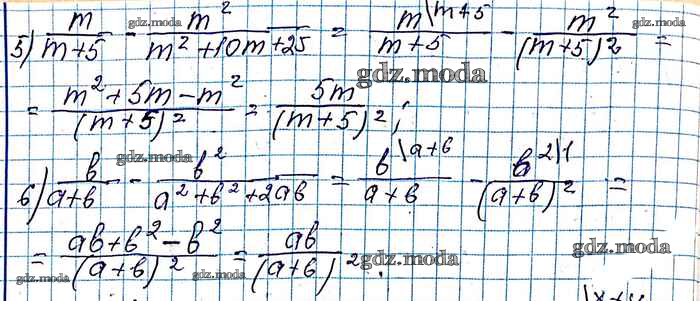 5) m/(m+5) - m²/(m²+10m+25) = m\m+5/(m+5) - m²/(m+5)² =
= (m²+5m-m²)/(m+5)² = 5m/(m+5)²;
6) b/(a+b) - b²/(a²+b²+2ab) = b\a+b/(a+b) - b²\1/(a+b)² =
= (ab+b²-b²)/(a+b)² = ab/(a+b)².
gdz.moda
gdz.moda
gdz.moda
gdz.moda
gdz.moda
gdz.moda
gdz.moda
gdz.moda